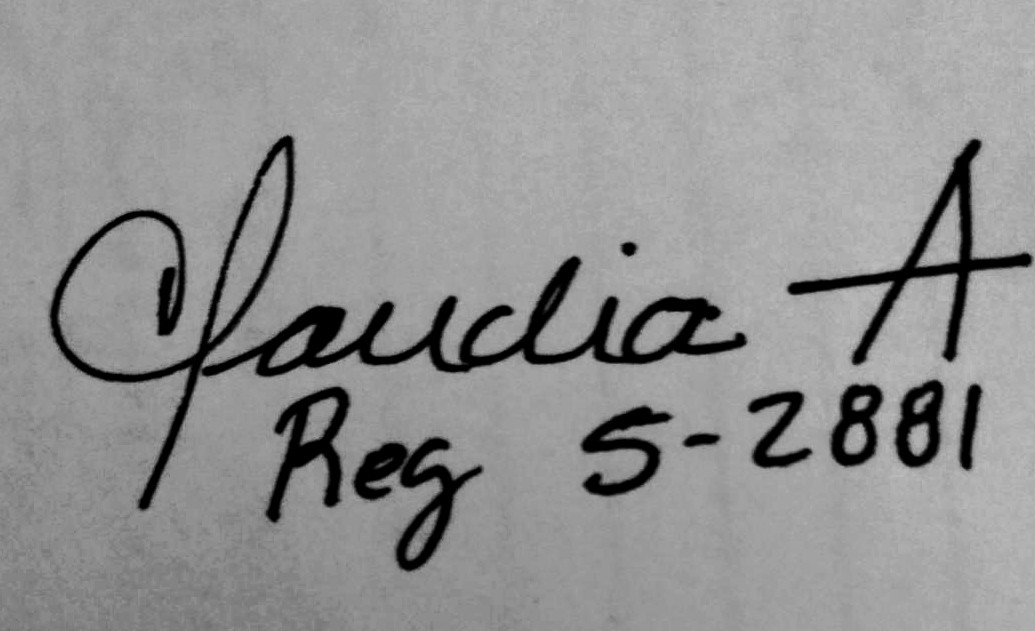 Claudia A
Reg 5-2881